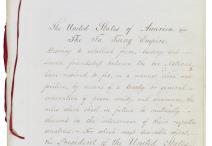 The United States of America and
The Ta Tsing Empire,
Desiring to establish firm, lasting and
sincere friendship between the two Nations,
have resolved to fix, in a manner clear and
positive, by means of a treaty or general
convention of peace, amity and commerce, the
rules which shall in future be mutually
observed in the intercourse of their respective
countries. For which most desirable object,
the President of the United States